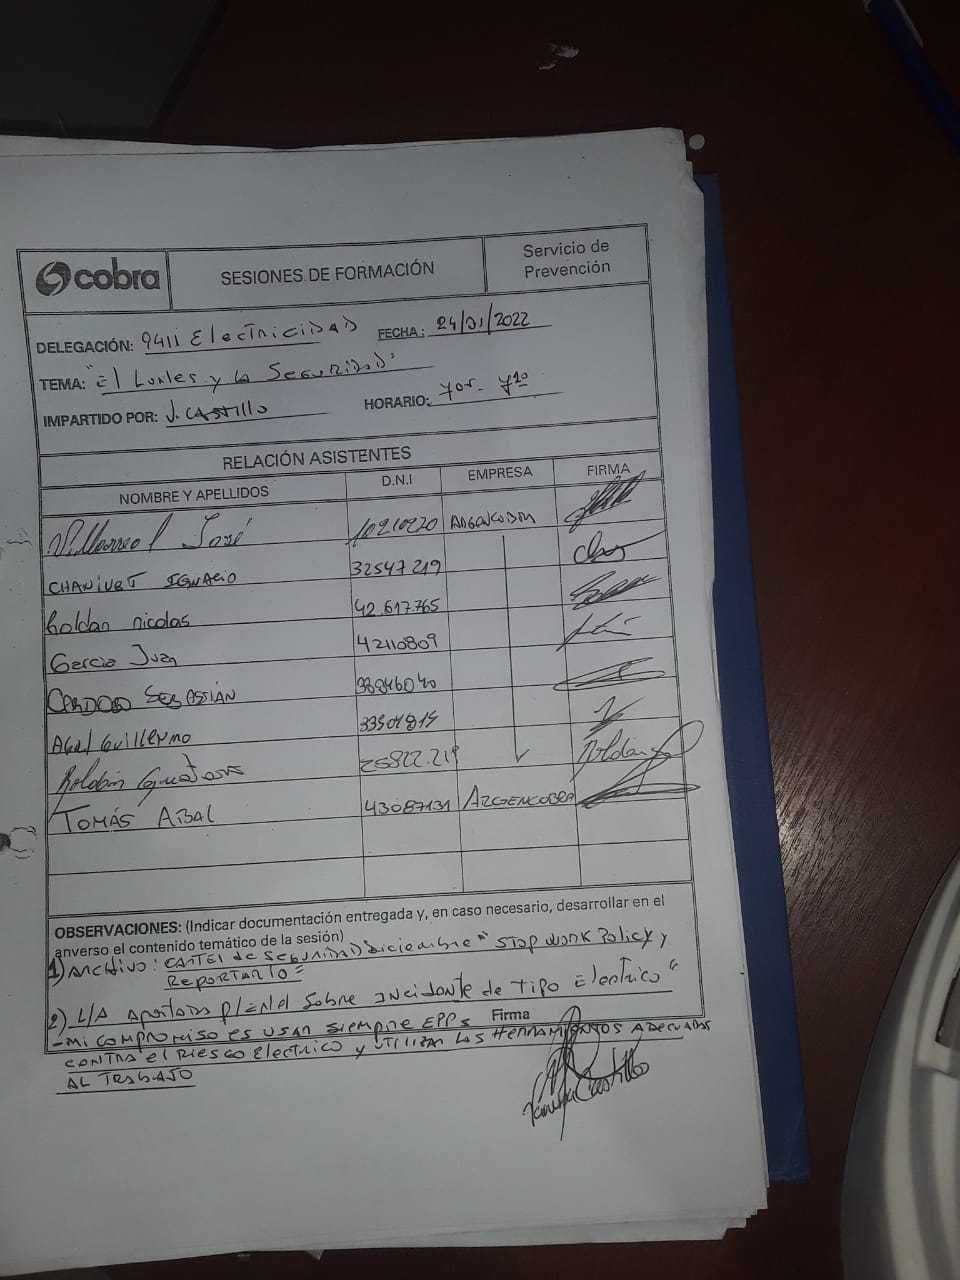 cobra
SESIONES DE FORMACIÓN
Servicio de
Prevención
DELEGACIÓN: 9411 Electricidad FECHA: 24/01/2022
TEMA: "El Lunes y la Seguridad"
IMPARTIDO POR: J. CASTILLO HORARIO:
RELACIÓN ASISTENTES
NOMBRE Y APELLIDOS D.N.I EMPRESA FIRMA
Villarreal José 10210220
CHANIVET IGNACIO 32547219
Roldan nicolas 42.617.765
Garcia Juan 42110809
SEBASTIÁN
Guillermo
Roldán Gustavo 25822.219 Roldán
TOMÁS AIBAL 43087131 ARGENCOBRA
OBSERVACIONES: (Indicar documentación entregada y, en caso necesario, desarrollar en el
anverso el contenido temático de la sesión)
1) Archivo: CARTEL de Seguridad Diciembre "STOP WORK Policy y
REPORTARLO"
2) sobre Incidente de Tipo Electrico"
Firma
- MI COMPROMISO es USAR SIEMPRE EPPs
CONTRA el RIESGO Electrico y UTILIZAR LAS HERRAMIENTAS ADECUADAS
AL TRABAJO
Castillo